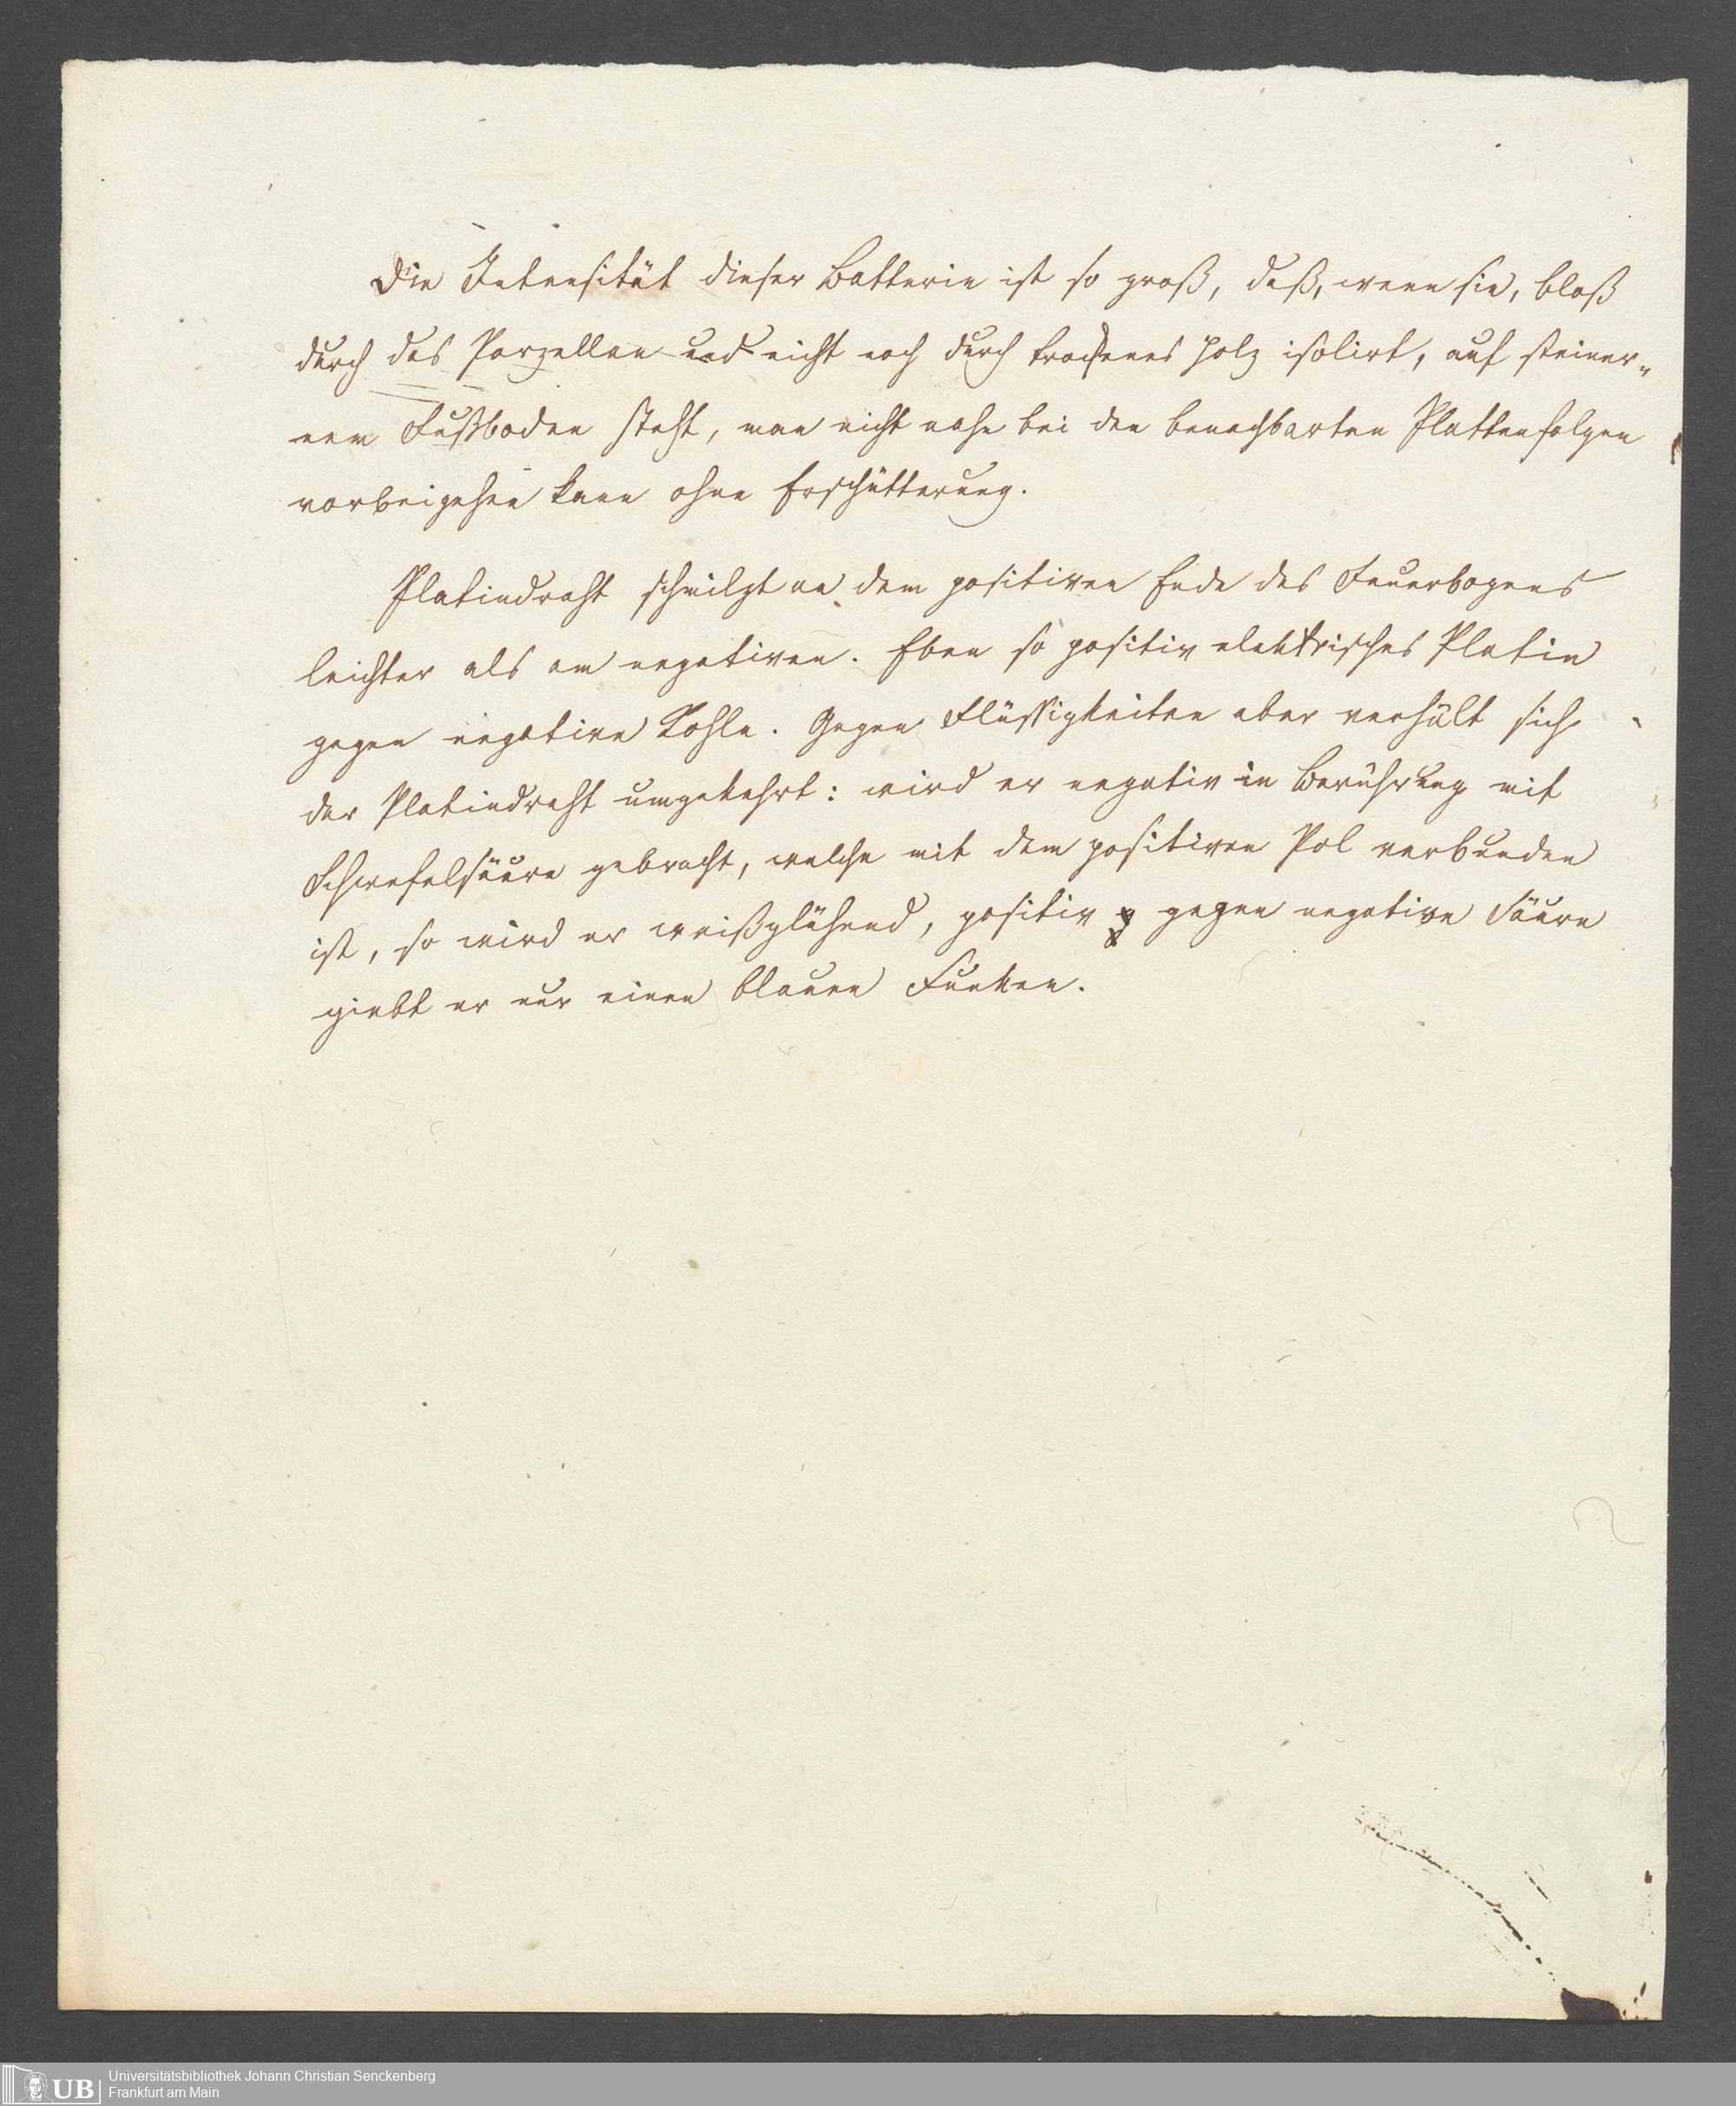 Die Intensität dieser Batterie ist so groß, daß, wenn sie, bloß
durch das Porzellan und nicht noch durch trockenes Holz isolirt, auf steiner„
nem Fußboden steht, man nicht nahe bei den benachbarten Plattenfolgen
vorbeigehen kann ohne Erschütterung.
Platindraht schmilzt an dem positiven Ende des Feuerbogens
leichter als am negativen. Eben so positiv elektrisches Platin
gegen negative Kohle. Gegen Flüssigkeiten aber verhält sich
der Platindraht umgekehrt: wird er negativ in Berührung mit
Schwefelsäure gebracht, welche mit dem positiven Pol verbunden
ist, so wird er weißglühend, positiv gegen negative Säure
giebt er nur einen blauen Funken.
UB
Universitätsbibliothek Johann Christian Senckenberg
Frankfurt am Main